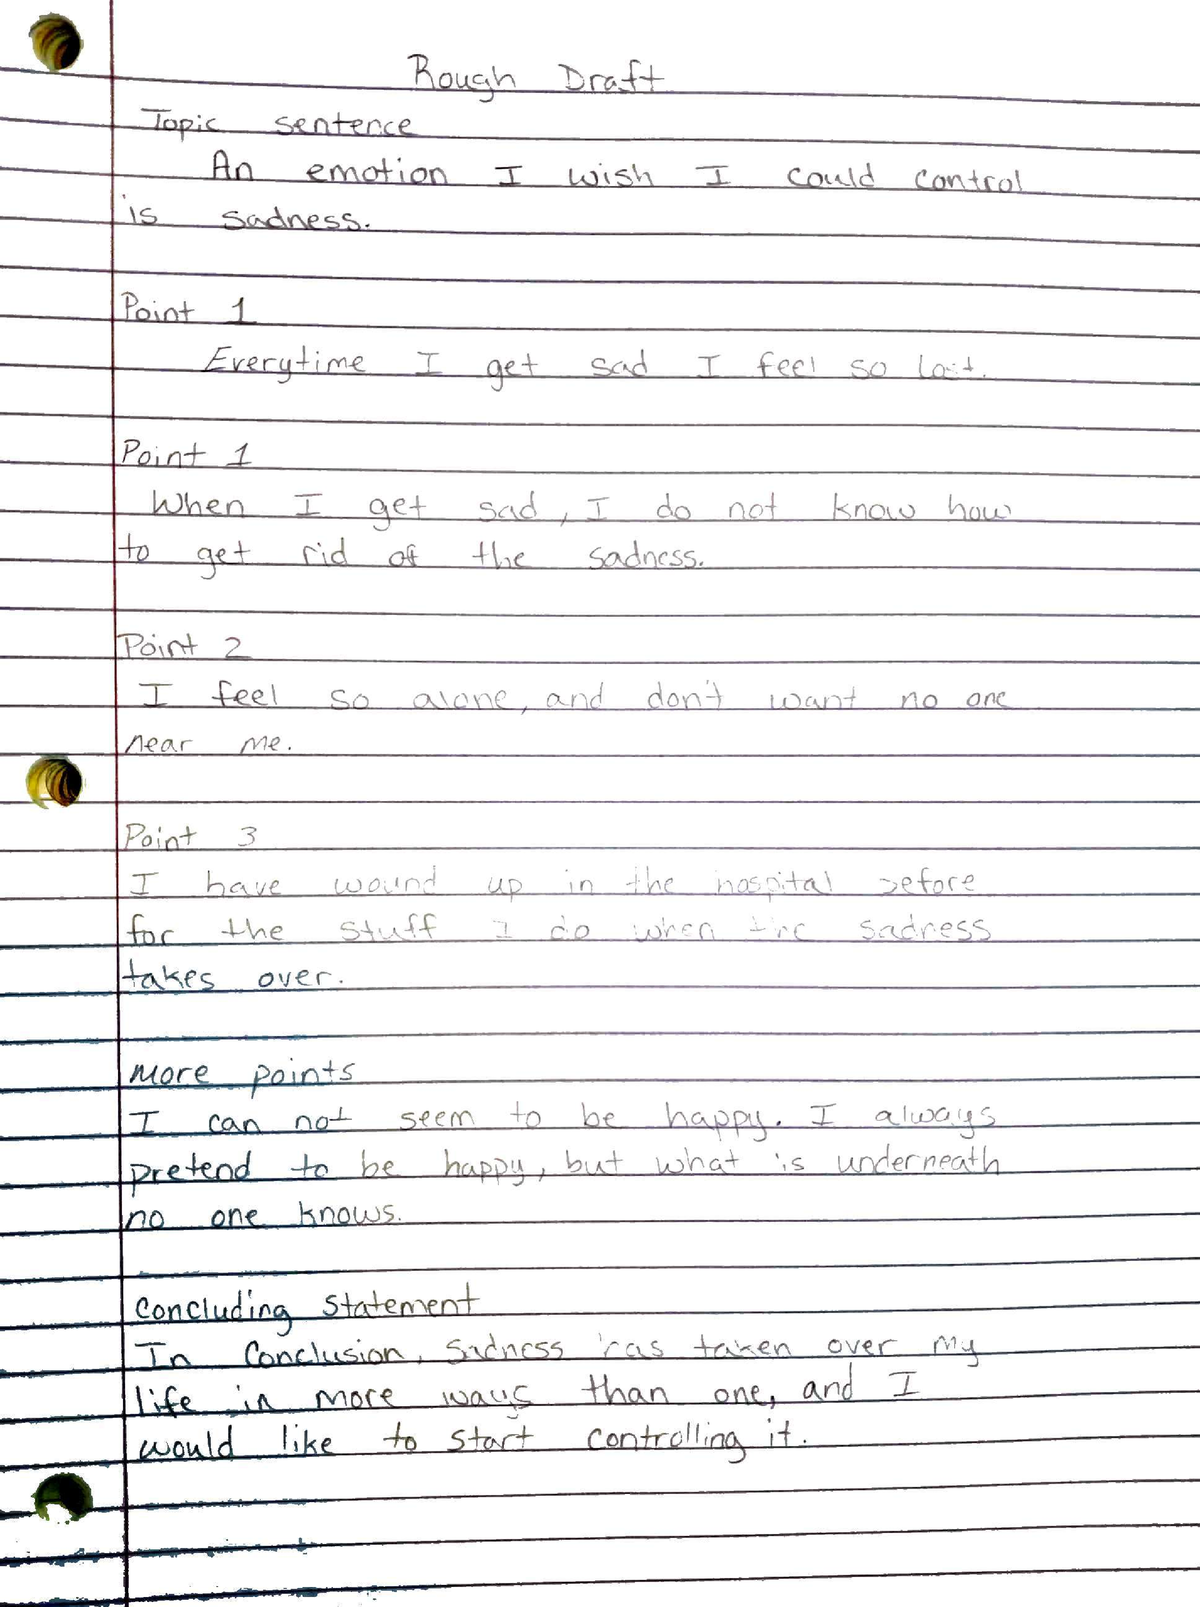 Rough Draft
Topic sentence
An emotion I wish I could control
is sadness.
Point 1
Everytime I get sad I feel so lost.
Point 1
When I get sad, I do not know how
to get rid of the sadness.
Point 2
I feel so alone, and don't want no one
near me.
Point 3
I have wound up in the hospital before
for the stuff I do when the sadness
takes over.
More points
I can not seem to be happy. I always
pretend to be happy, but what is underneath
no one knows.
Concluding statement
In Conclusion, sadness has taken over my
life in more ways than one, and I
would like to start controlling it.